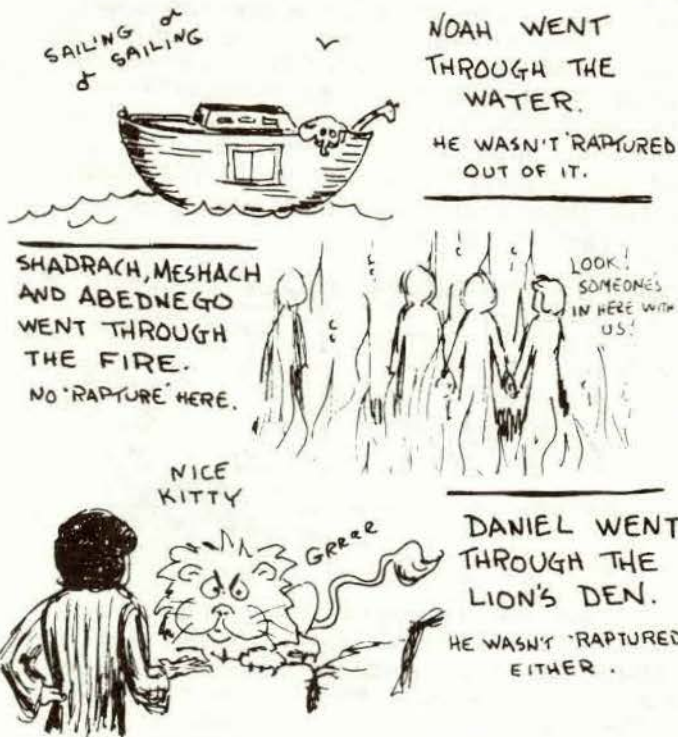 SAILING &
& SAILING
NOAH WENT
THROUGH THE
WATER.
HE WASN'T 'RAPTURED
OUT OF IT.
SHADRACH, MESHACH
AND ABEDNEGO
WENT THROUGH
THE FIRE.
NO 'RAPTURE' HERE.
LOOK!
SOMEONE'S
IN HERE WITH
US!
NICE
KITTY
GRRRR
DANIEL WENT
THROUGH THE
LION'S DEN.
HE WASN'T 'RAPTURED
EITHER.